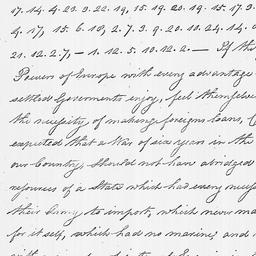 17. 14. 4. 23. 3. 22. 19, 15. 19. 20. 19. 15. 17. 3.
4. 17, 15. 6. 13, 2. 7. 3. 9. 20. 10. 24. 14.
21. 12. 2. 7, — 1. 12. 5. 10. 12. 2. — If the
Powers of Europe with every advantage
settled Goverments enjoy, feel themselve
the necessity of makeing foreigns loans,
expected that a War of six years in the
our Country, should not have abridged
resources of a State which had every
their Army, to import, which never ma
for it self, which had no marine; and